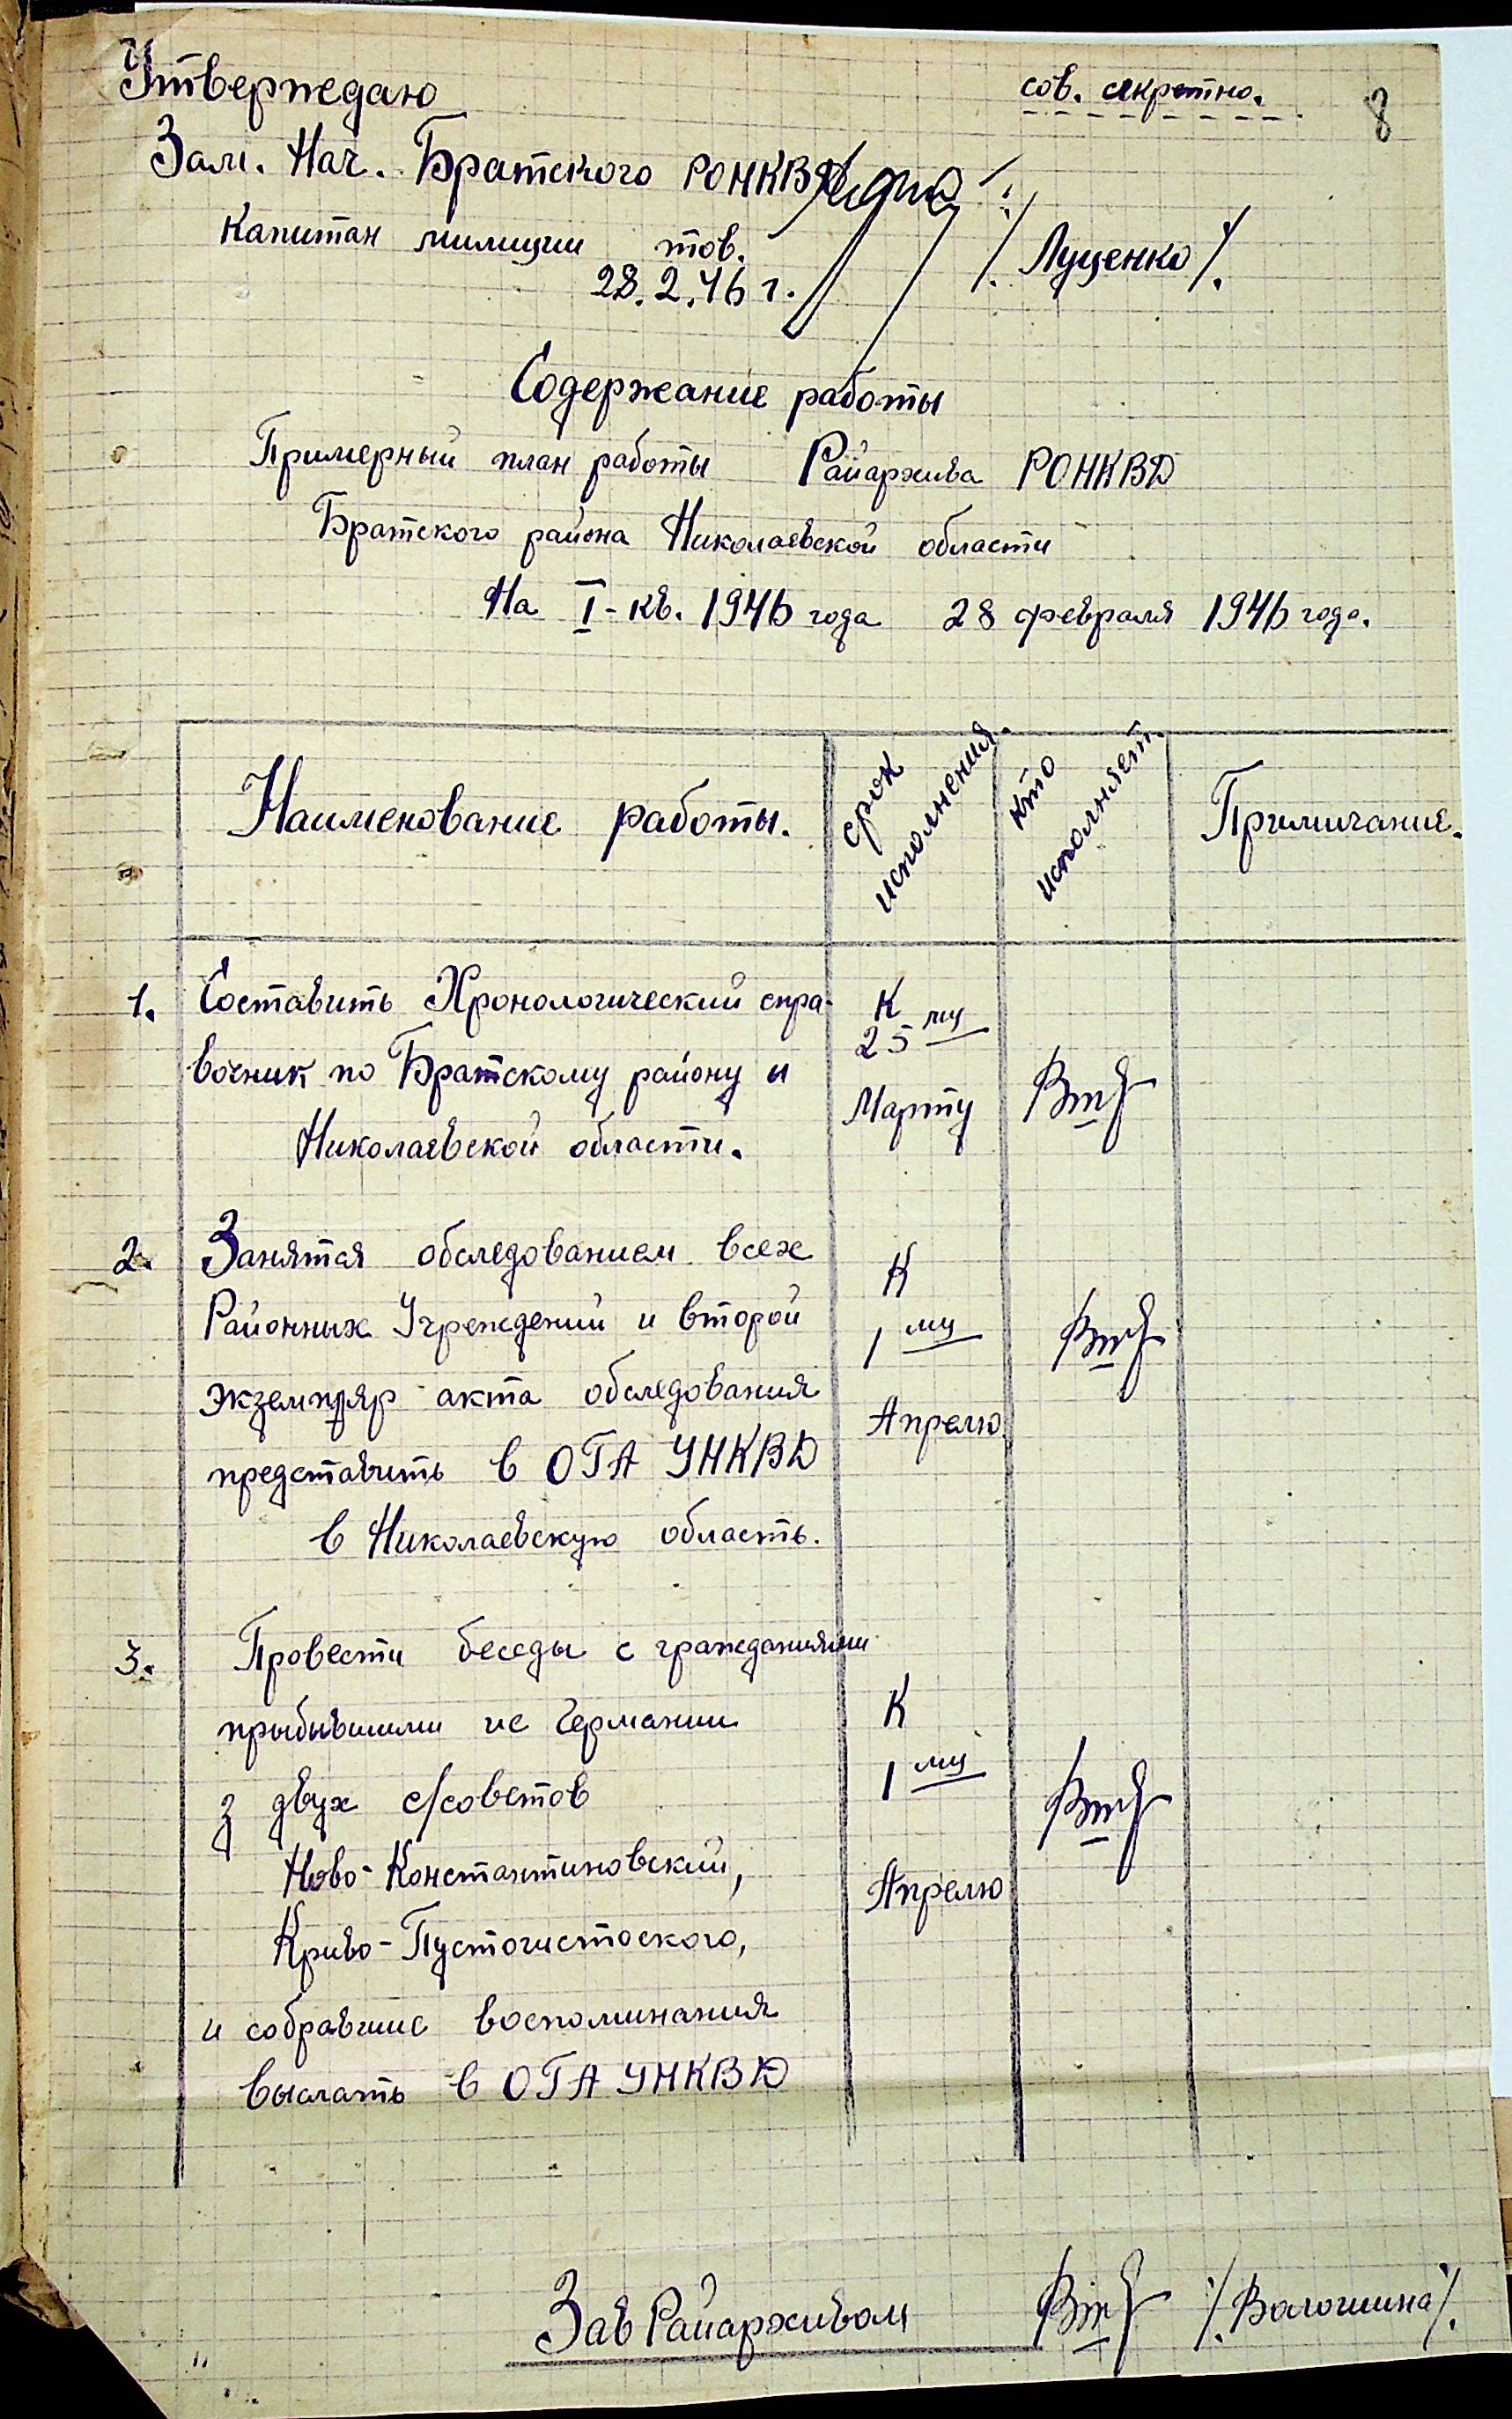 Утверждаю
сов. секретно.
8
Зам. Нач. Братского РОНКВД
Капитан милиции тов. /Луценко/.
28.2.46 г.
Содержание работы
Примерный план работы Райархива РОНКВД
Братского района Николаевской области
На I-кв. 1946 года 28 февраля 1946 года.
Наименование работы.
срок исполнения.
кто исполняет.
Примичание.
1. Составить Хронологический спра-
вочник по Братскому району и
Николаевской области.
К
25 му
Марту
2. Занятся обследованием всех
Районных Учреждений и второй
экземпляр акта обследования
представить в ОГА УНКВД
в Николаевскую область.
К
1 му
Апрелю
3. Провести беседы с гражданиями
прыбывшими ис Германии
з двух с/советов
Ново-Константиновский,
Криво-Пустогистоского,
и собравшие воспоминания
выслать в ОГА УНКВД
К
1 му
Апрелю
Зав Райархивом /Волошина/.